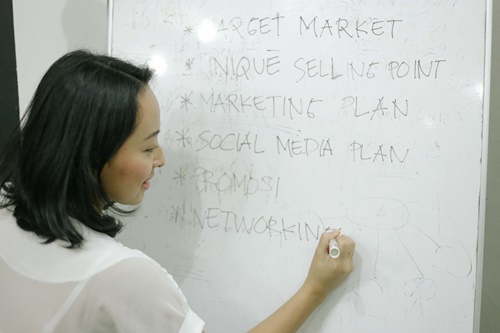 * TARGET MARKET
* UNIQUE SELLING POINT
* MARKETING PLAN
* SOCIAL MEDIA PLAN
* PROMOSI
* NETWORKING